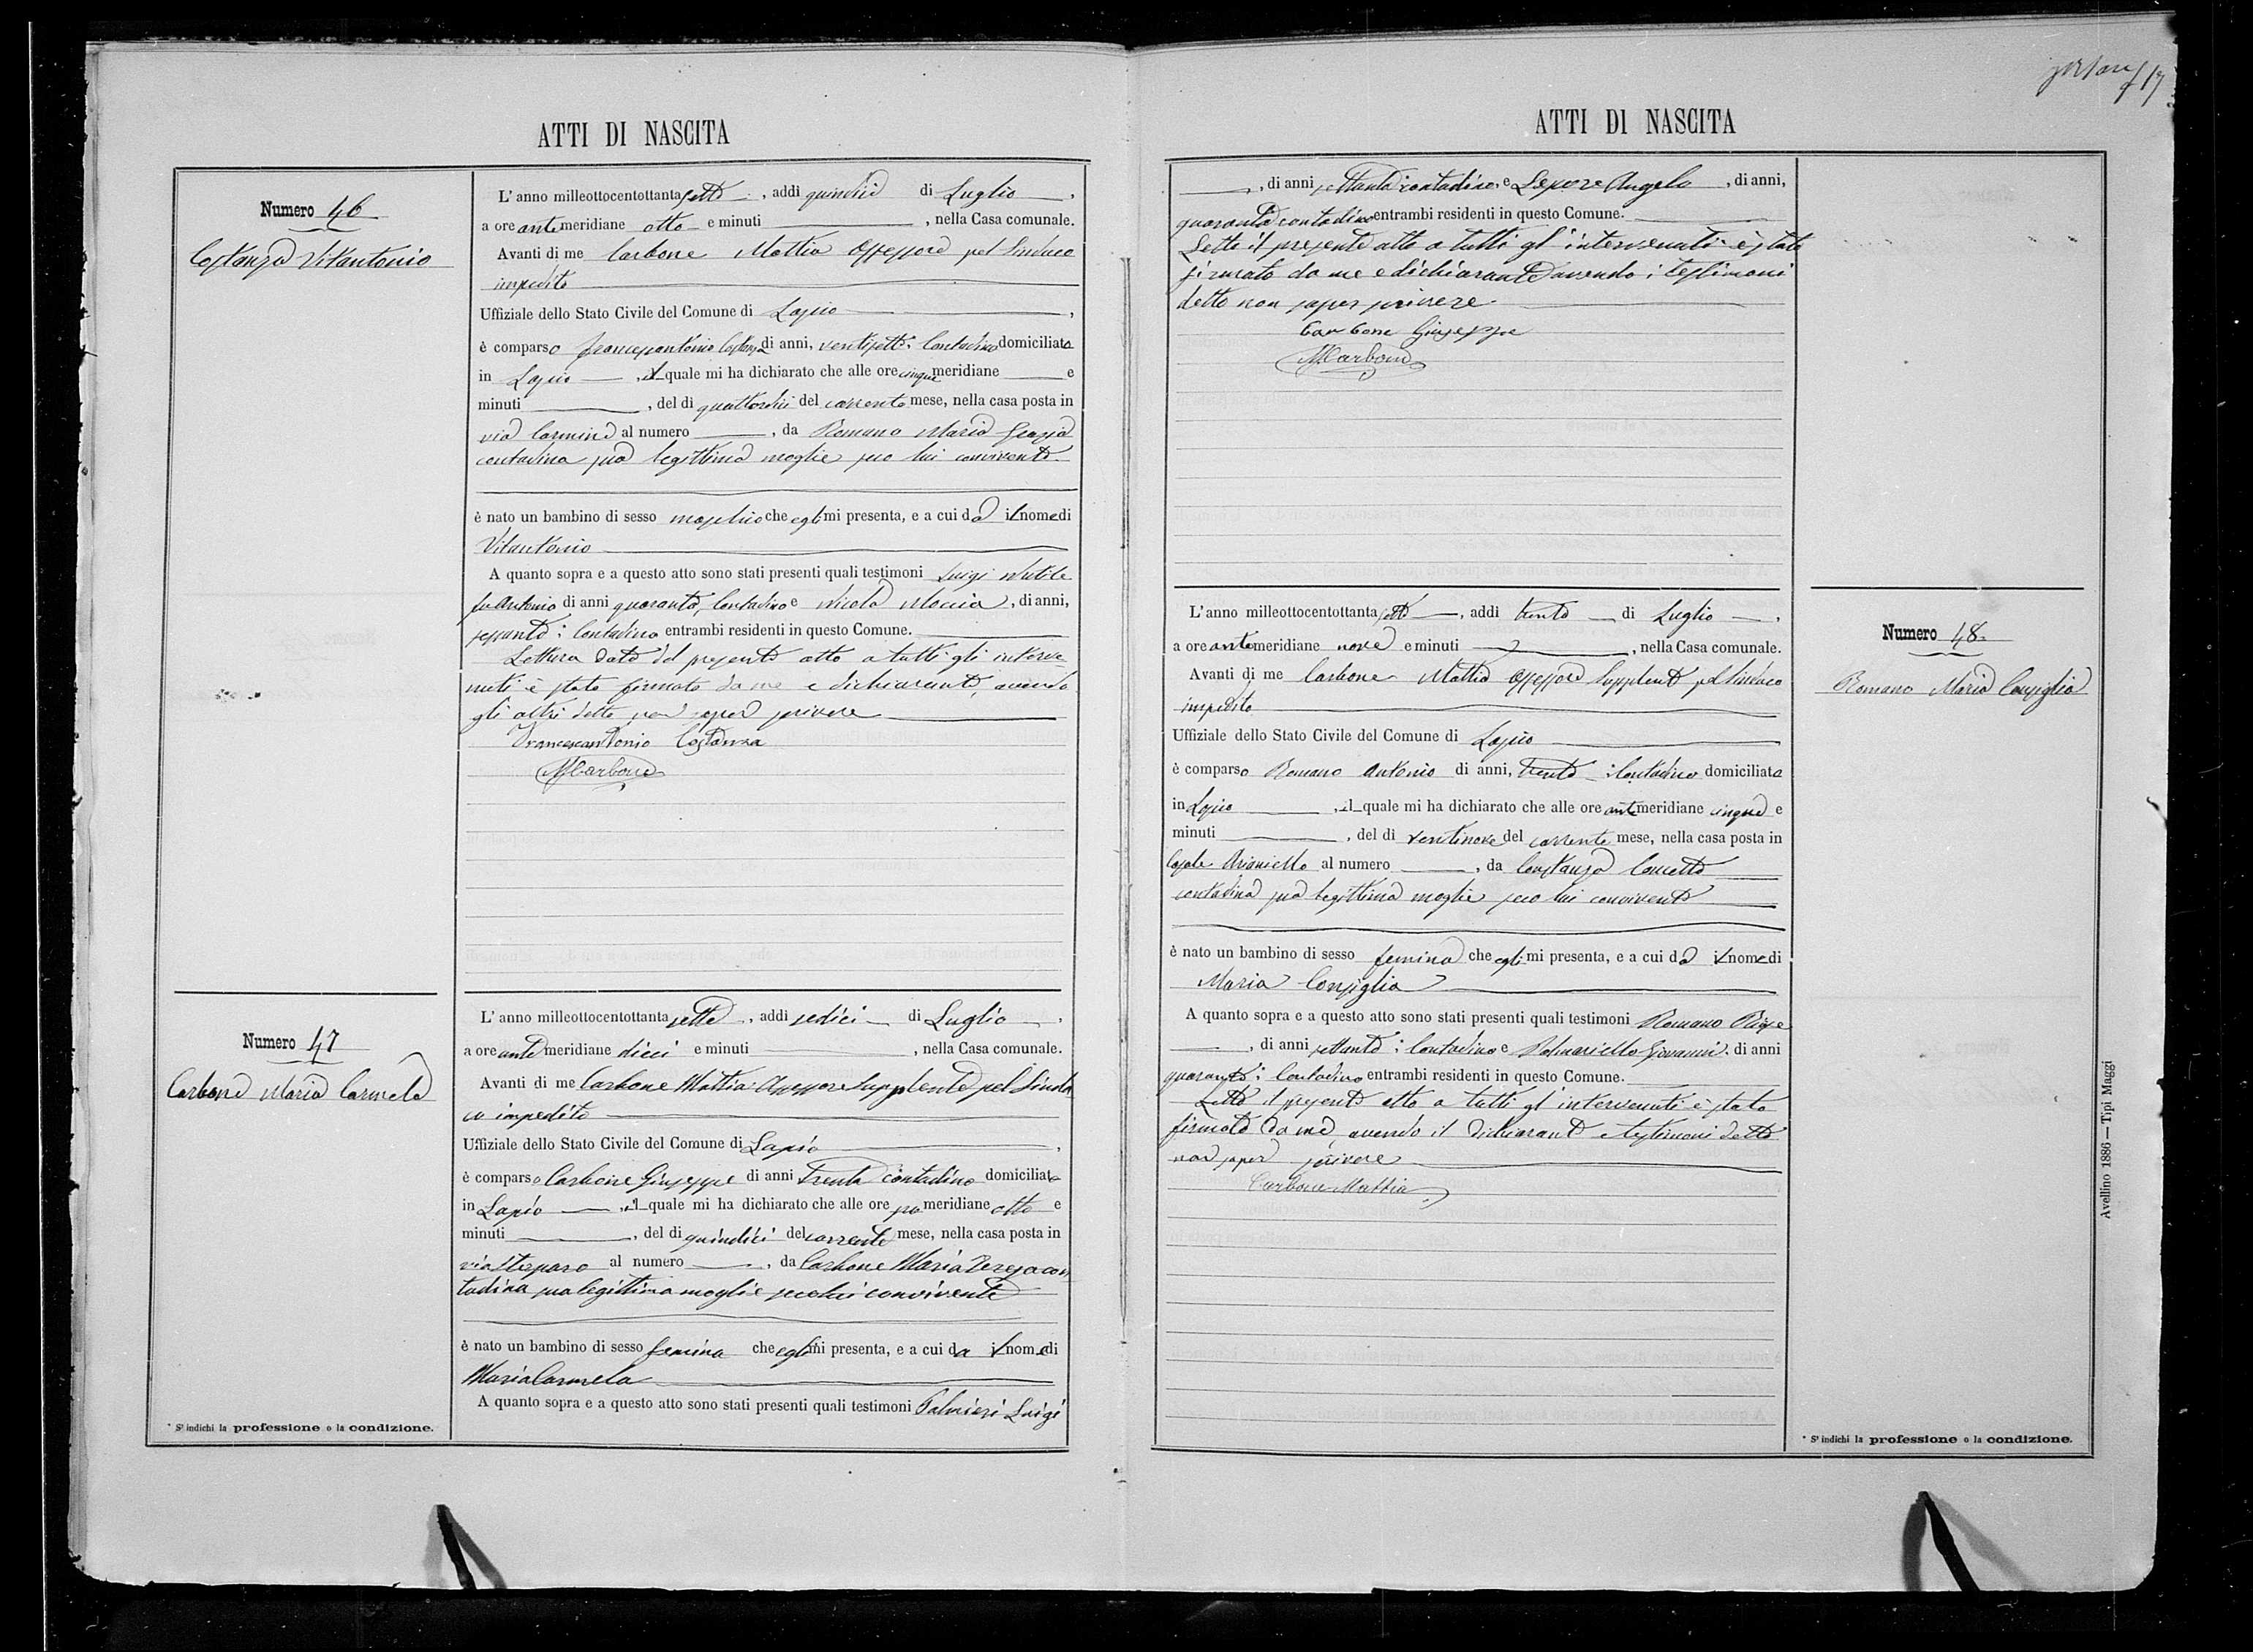 ATTI DI NASCITA
Numero 46
Costanza Vitantonio
L' anno milleottocentottanta sette, addì quindici di Luglio,
a ore antemeridiane otto e minuti, nella Casa comunale.
Avanti di me Carbone Mattia Assessore pel Sindaco
impedito
Uffiziale dello Stato Civile del Comune di Lapio,
è comparso Francescantonio Costanza di anni, ventisette: Contadino domiciliato
in Lapio, il quale mi ha dichiarato che alle ore cinque meridiane e
minuti, del dì quattordici del corrente mese, nella casa posta in
via Carmine al numero, da Romano Maria Grazia
contadina sua legittima moglie seco lui convivente
è nato un bambino di sesso maschio che egli mi presenta, e a cui dà il nome di
Vitantonio
A quanto sopra e a questo atto sono stati presenti quali testimoni Luigi Nutile
fu Antonio di anni quaranta, Contadino e Nicola Moccia, di anni,
sessanta: Contadino entrambi residenti in questo Comune.
Lettura data del presente atto a tutti gli interve-
nuti è stato firmato da me e dichiarante, avendo
gli altri detto non saper scrivere
Francescantonio Costanza
MCarbone
Numero 47
Carbone Maria Carmela
L' anno milleottocentottanta sette, addì sedici di Luglio,
a ore antemeridiane dieci e minuti, nella Casa comunale.
Avanti di me Carbone Mattia Assessore Supplente pel Sinda
co impedito
Uffiziale dello Stato Civile del Comune di Lapio,
è comparso Carbone Giuseppe di anni Trenta contadino domiciliato
in Lapio, il quale mi ha dichiarato che alle ore po meridiane otto e
minuti, del dì quindici del corrente mese, nella casa posta in
via al numero, da Carbone Maria Teresa con
tadina sua legittima moglie seco lui convivente
è nato un bambino di sesso femina che egli mi presenta, e a cui da il nome di
Maria Carmela
A quanto sopra e a questo atto sono stati presenti quali testimoni Palmieri Luigi
* S' indichi la professione o la condizione.
ATTI DI NASCITA
, di anni settanta contadino, e Lepore Angelo, di anni,
quaranta contadino entrambi residenti in questo Comune.
Letto il presente atto a tutti gl' intervenuti è stato
firmato da me e dichiarante avendo i testimoni
detto non saper scrivere
Carbone Giuseppe
MCarbone
L'anno milleottocentottanta sette, addì trenta di Luglio,
a ore antemeridiane nove e minuti, nella Casa comunale.
Avanti di me Carbone Mattia Assessore Supplente pel Sindaco
impedito
Uffiziale dello Stato Civile del Comune di Lapio
è comparso Romano Antonio di anni, trenta: Contadino domiciliato
in Lapio, il quale mi ha dichiarato che alle ore antemeridiane cinque e
minuti, del dì ventinove del corrente mese, nella casa posta in
Casale Arianiello al numero, da Constanza Concetta
contadina sua legittima moglie seco lui convivente
è nato un bambino di sesso femina che egli mi presenta, e a cui dà il nome di
Maria Consiglia
A quanto sopra e a questo atto sono stati presenti quali testimoni Romano
, di anni settanta: Contadino e Palmariello Giovanni, di anni
quaranta: Contadino entrambi residenti in questo Comune.
Letto il presente atto a tutti gl' intervenuti è stato
firmato da me, avendo il dichiarante e testimoni detto
non saper scrivere
Carbone Mattia
Numero 48
Romano Maria Consiglia
Avellino 1886 — Tipi Maggi
* S' indichi la professione o la condizione.